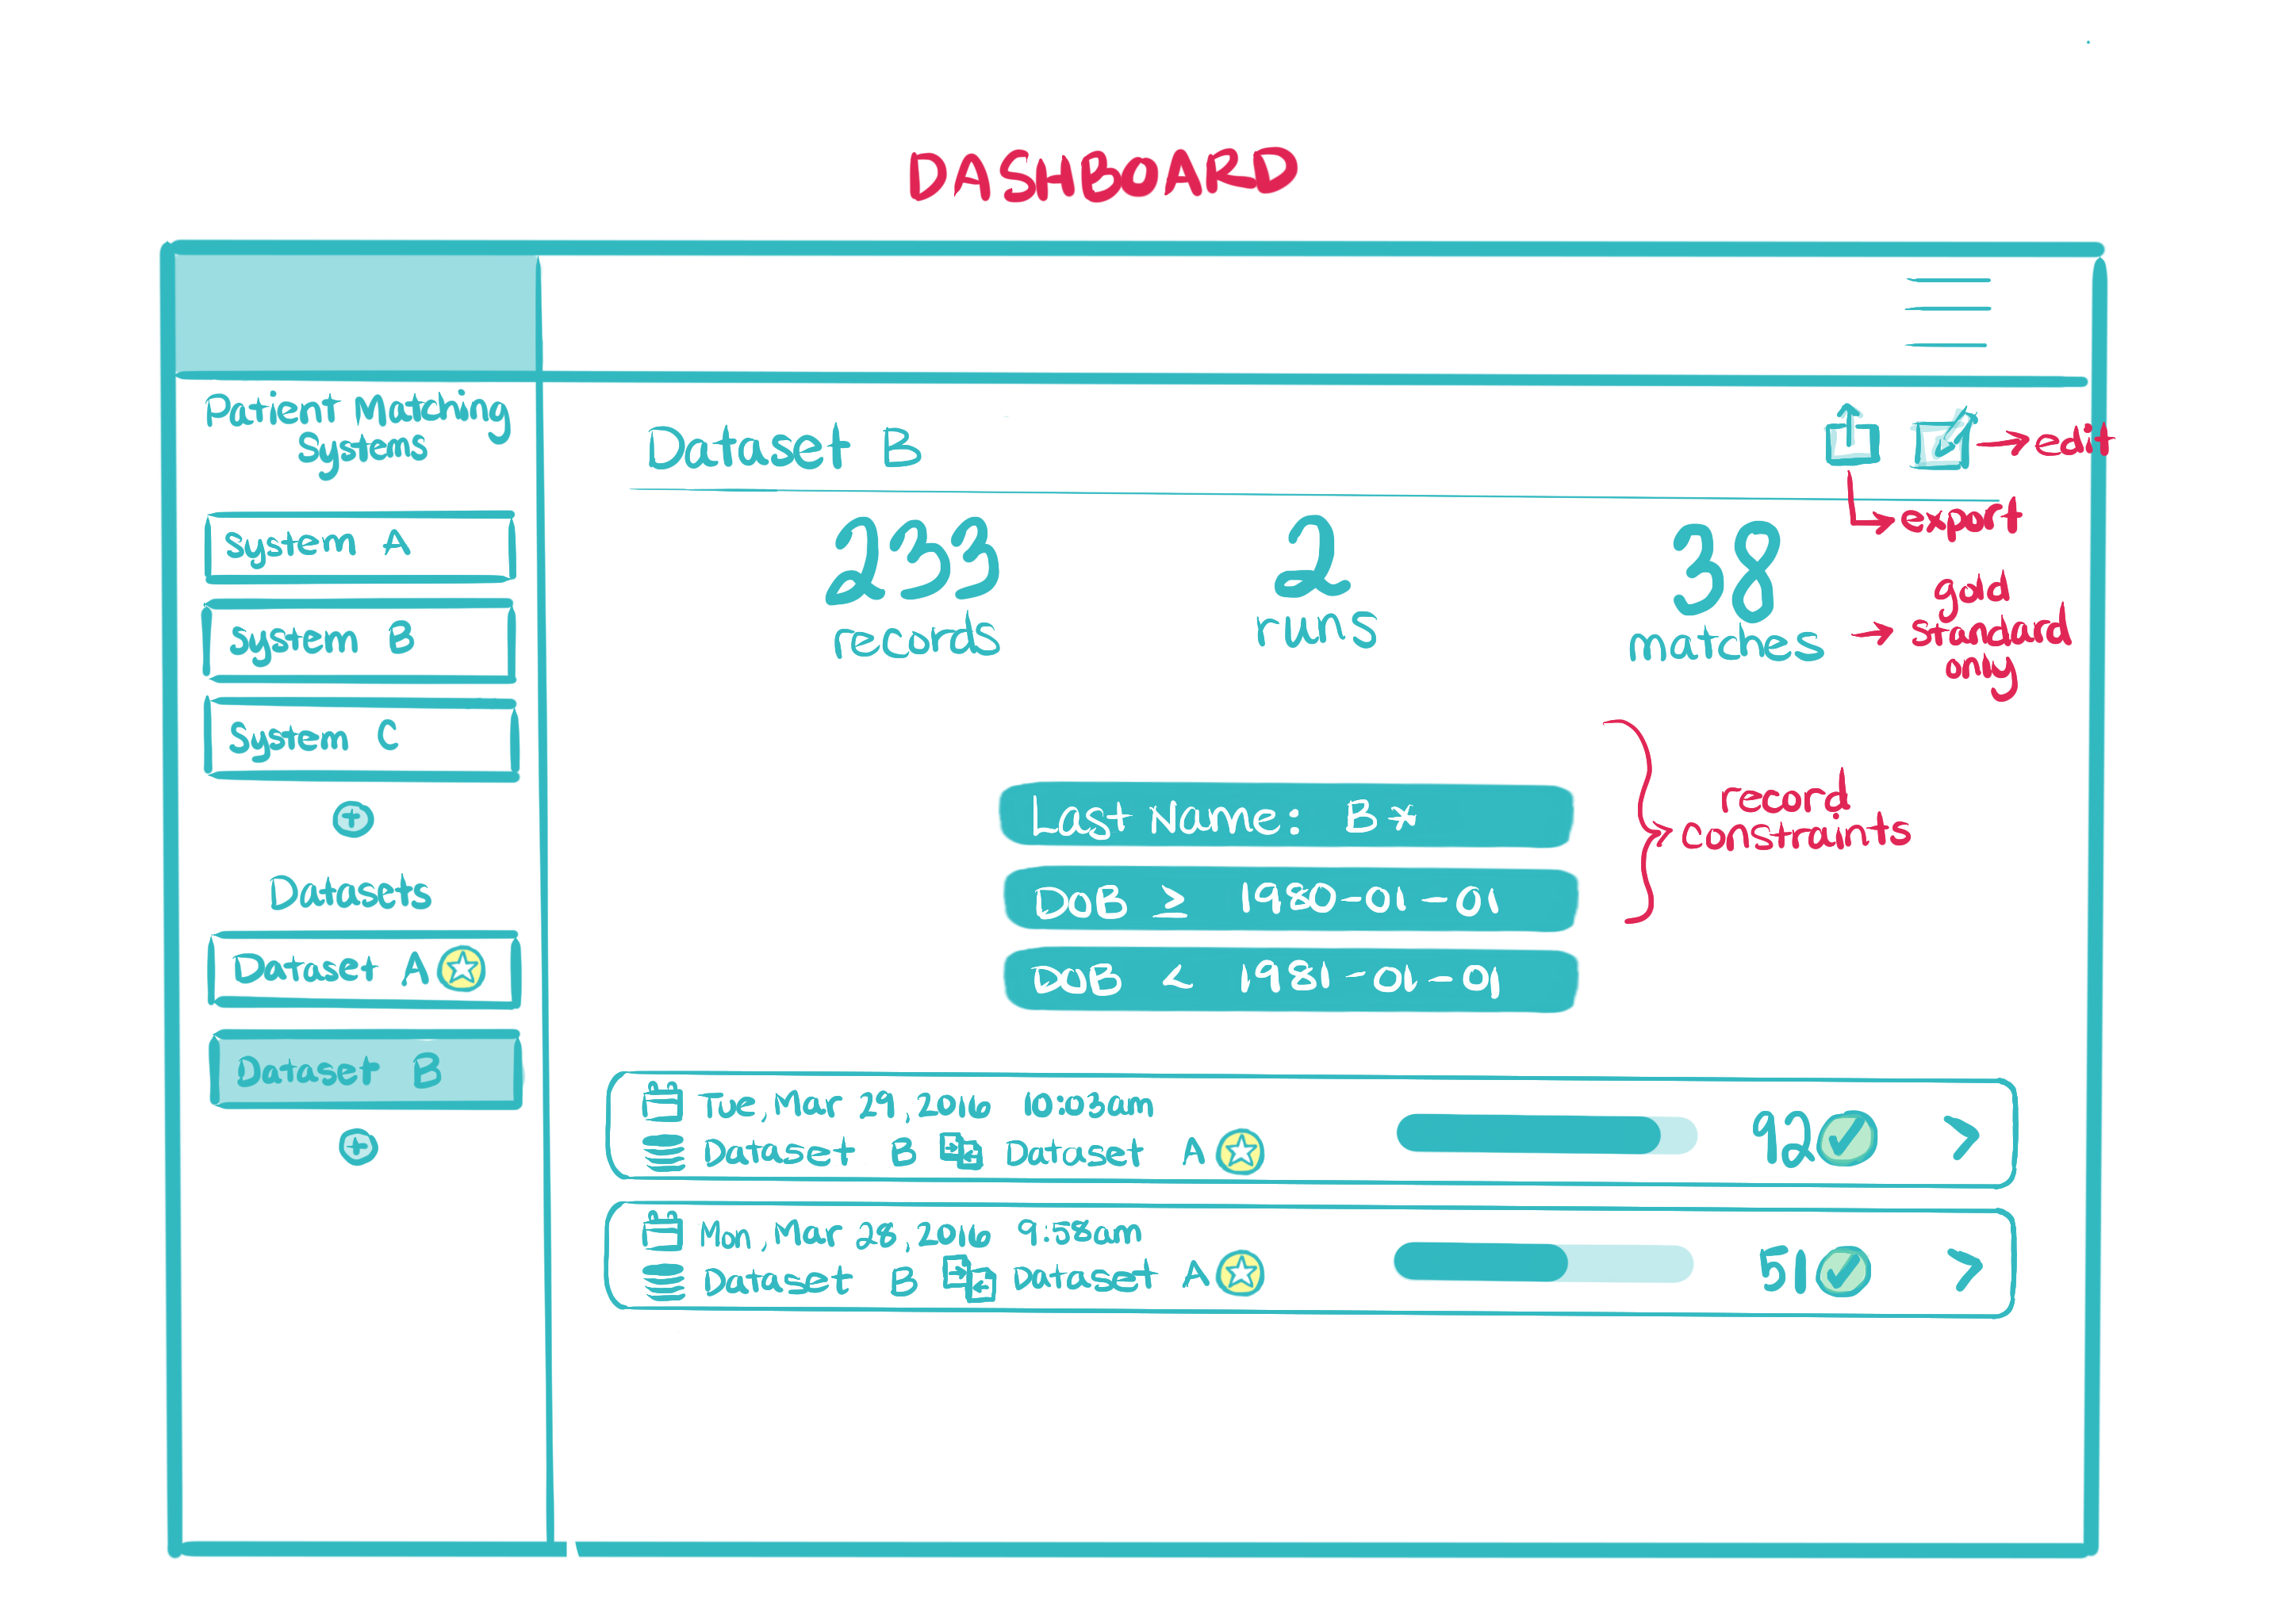 DASHBOARD
Patient Matching
Systems
System A
System B
System C
+
Datasets
Dataset A
Dataset B
+
Dataset B
edit
export
233
records
2
runs
38
matches
gold
standard
only
Last Name: B*
DoB ≥ 1980-01-01
DoB < 1981-01-01
record
constraints
Tue, Mar 29, 2016 10:03am
Dataset B Dataset A
92
Mon, Mar 28, 2016 9:58am
Dataset B Dataset A
51